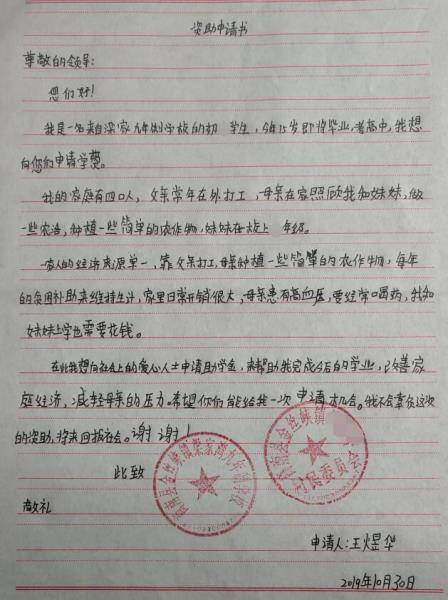 资助申请书
尊敬的领导:
您们好!
我是一名来自梁家九年制学校的初 学生,今年15岁即将毕业,考高中,我想
向您们申请学费。
我的家庭有四口人,父亲常年在外打工,母亲在家照顾我和妹妹,做
一些农活,种植一些简单的农作物,妹妹在校上 年级。
一家人的经济来源单一,靠父亲打工,母亲种植一些简单的农作物,每年
的贫困补助来维持生计,家里日常开销很大,母亲患有高血压,要经常喝药,我和
妹妹上学也需要花钱。
在此我想向社会上的爱心人士申请助学金,来帮助我完成今后的学业,改善家
庭经济,减轻母亲的压力。希望你们能给我一次申请机会。我不会辜负这次
的资助,将来回报社会。谢谢!
此致
敬礼
县金丝峡镇梁家湾九年制学校
县金丝峡镇
村民委员会
申请人:王煜华
2019年10月30日